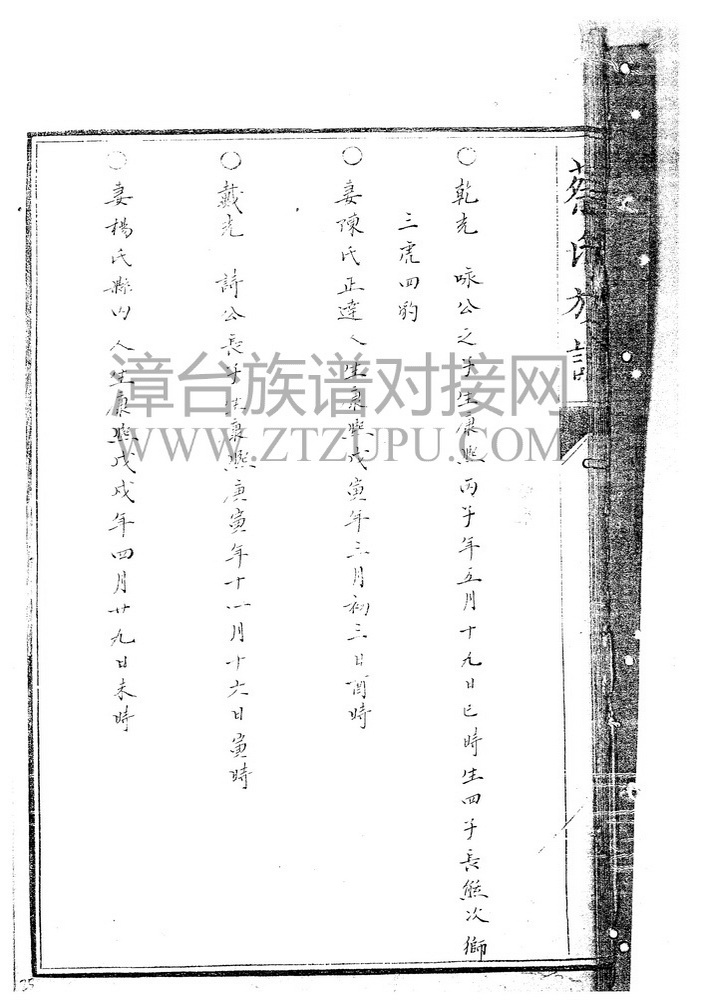 蔡氏族譜
○乾光 咏公之子生康熙丙子年五月十九日巳時生四子長熊次獅
三虎四豹
○妻陳氏正達人生康熙戊寅年三月初三日酉時
○戴光 詩公長子生康熙庚寅年十一月十六日寅時
○妻楊氏縣内人生康熙戊戌年四月廿九日未時
漳台族谱对接网
WWW.ZTZUPU.COM
25